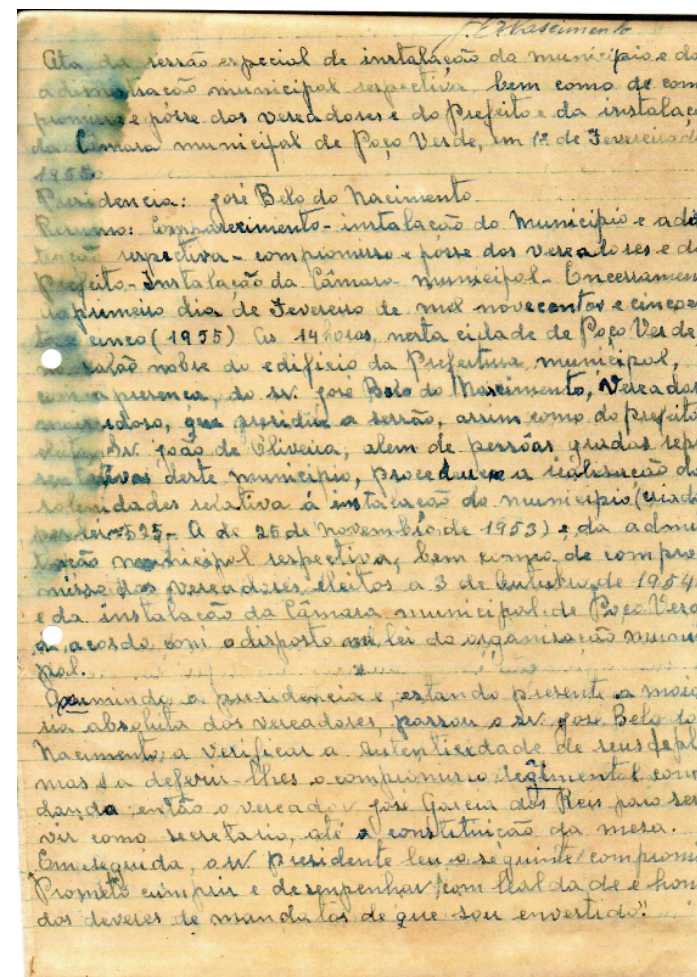 J. B. Nascimento
Ata da sessão especial de instalação do município e da
administração municipal respectiva, bem como de com
promisso e pósse dos vereadores e do Prefeito e da instalaç
da Câmara municipal de Poço Verde, em 1º de Fevereiro de
1955.
Presidencia: José Belo do Nacimento
Resumo: Comparecimento - instalação do Municipio e adi
respectiva - compromisso e pósse dos vereadores e do
Prefeito - Instalação da Câmara municipal - Encerramen
primeiro dia de Fevereiro de mil novecentos e cincoen
ta e cinco (1955) ás 14 horas, nesta cidade de Poço Verde,
no salão nobre do edificio da Prefeitura municipal,
com a presença, do sr. José Belo do Nascimento, Vereador
mais idoso, que presidiu a sessão, assim como do prefeito
eleito, Sr. João de Oliveira, alem de pessôas gradas repr
sentativas deste municipio, procedeu-se a realisação da
solenidades relativa á instalação do municipio (criado
por lei nº 525 - A de 25 de novembro, de 1953) e, da admi
tração municipal respectiva, bem como, de compro
misso dos vereadores eleitos a 3 de Outubro, de 1954
e da instalação da Câmara municipal de Poço Verd
de acordo com o disposto na lei da organisação munici
pal.
Assumindo a presidencia e, estando presente a maio
ria absoluta dos vereadores, passou o sr. José Belo do
Nacimento, a verificar a autenticidade de seus depl
mas e a deferir-lhes o compromisso regimental conv
dando então o vereador José Garcia dos Reis para ser
vir como secretario, até a constituição da mesa.
Em seguida, o sr. Presidente leu o seguinte compromi
Prometo cumprir e desenpenhar com lealdade e hon
dos deveres de mandatos de que sou envestido".